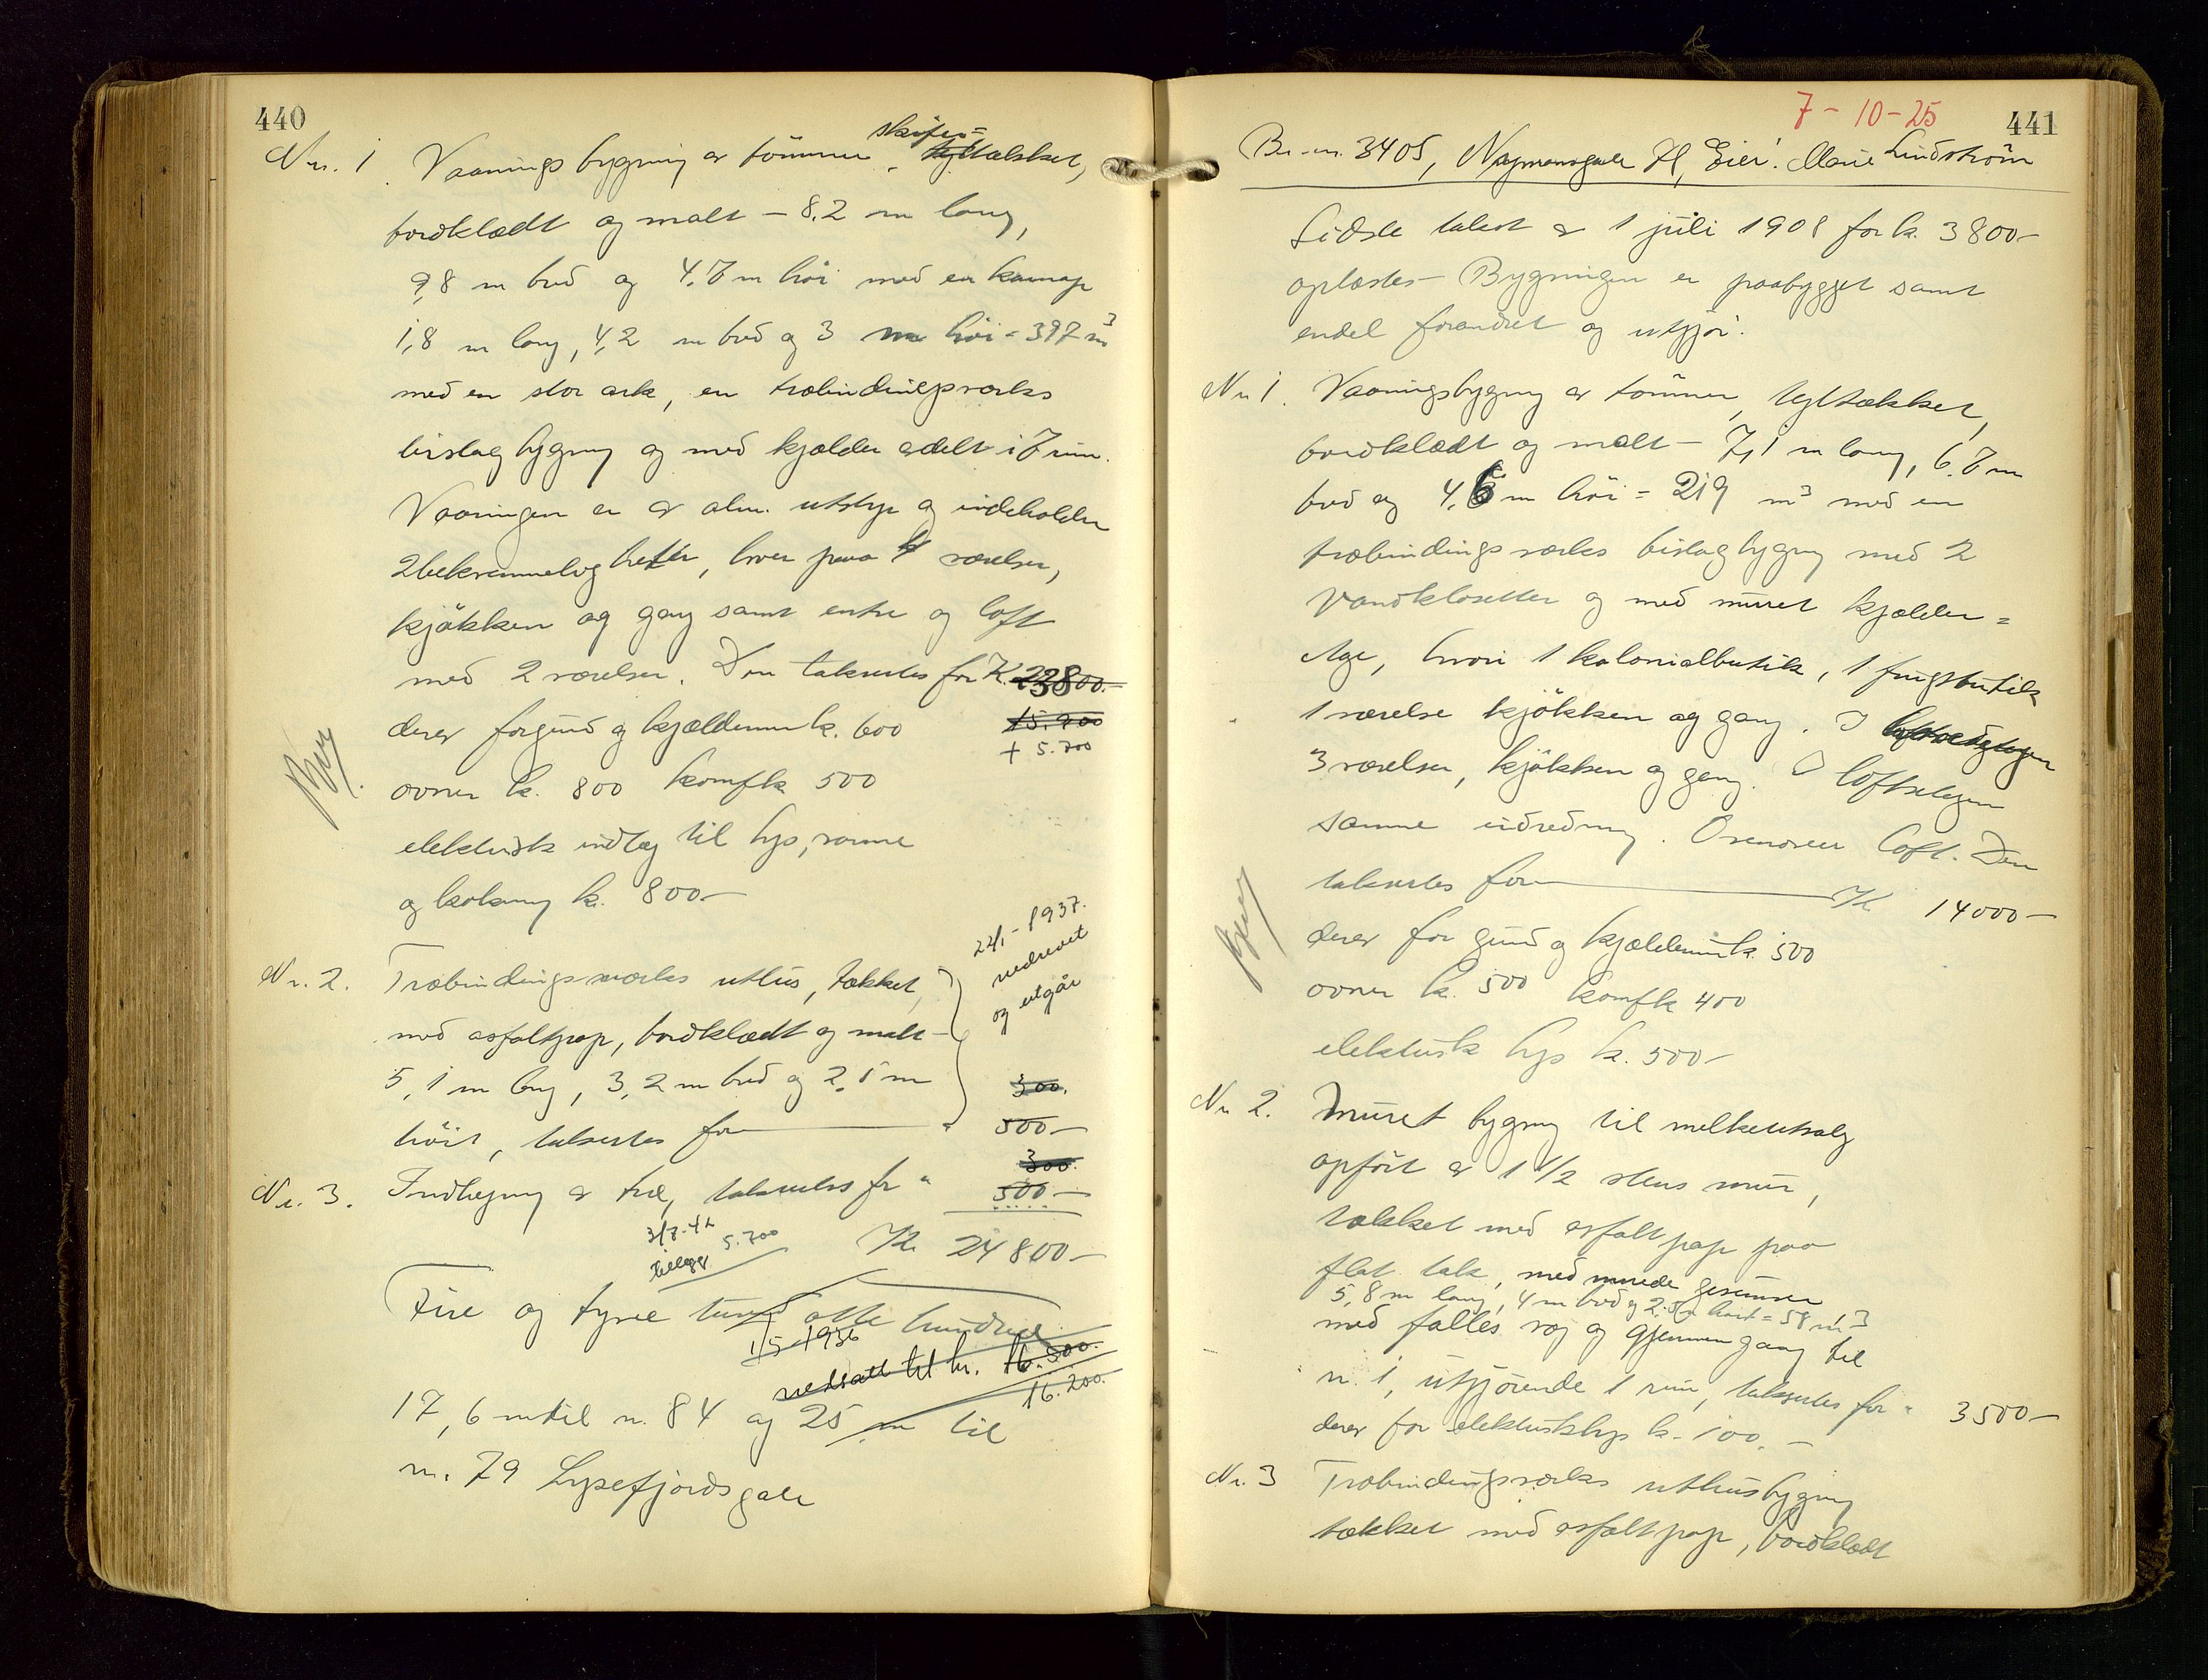 440
Nr. 1. Vaaningsbygning av tømmer, skifer= tegltækket,
bordklædt og malt – 8,2 m lang,
9,8 m bred og 4,7 m høi med en karnap
1,8 m lang, 4,2 m bred og 3 m høi = 397 m³
med en stor ark, en træbindingsverks
bislagbygning og med kjælder avdelt i 7 rum.
Vaaningen er av alm. utstyr og indeholder
2 bekvemmeligheter, hver paa 4 værelser,
kjøkken og gang samt entre og loft
med 2 værelser. Den takseres for K. 23800.–
derav for grund og kjældermur k. 600
15.200
+ 5.700
ovner k. 800 komf k 500
elektrisk indlæg til lys, varme
og kokning k. 800 –
22/1 – 1937.
nedrevet
og utgår
Nr. 2. Træbindingsverks uthus, tækket,
med asfaltpap, bordklædt og malt –
5,1 m lang, 3,2 m bred og 2,5 m
300.
høit, takseres for 500 –
300.
Nr. 3. Indhegning av træ, takseres for " 500 –
3/7-42
tillegg 5.700
Kr 24800 –
Fire og tyve tusen otte hundrede
1/5 1936
nedsatt til kr. 16.500.
16.200.
17,6 m til n. 84 og 25 m til
n. 79 Lysefjordsgate
7 – 10 – 25
441
Br.-nr. 3405, Nymansgate 71, Eier: Marie Lindstrøm
Sidste takst av 1 juli 1908 for k. 3800 –
oplæstes – Bygningen er paabygget samt
endel forandret og utgjør:
Nr 1. Vaaningsbygning av tømmer, tegltækket,
bordklædt og malt – 7,1 m lang, 6.7 m
bred og 4,6 m høi = 219 m³ med en
træbindingsverks bislagbygning med 2
vandklosetter og med muret kjælder=
etage, hvori 1 kolonialbutik, 1
1 værelse kjøkken og gang. I
3 værelser, kjøkken og gang. I loftsetagen
samme indredning. Ovenover loft. Den
takseres for Kr 14000 –
derav for grund og kjældermur k. 500
ovner k. 500 komf k 400
elektrisk lys k. 500 –
Nr 2. Muret bygning til melkeutsalg
opført av 1 1/2 stens mur,
tækket med asfaltpap paa
flat tak, med murede gesimser
5,8 m lang, 4 m bred og 2,5 m høit = 58 m³
med fælles væg og gjennemgang til
n. 1, utgjørende 1 rum, takseres for " 3500 –
derav for elektrisk lys k. 100. –
Nr. 3 Træbindingsverks uthusbygning
tækket med asfaltpap, bordklædt